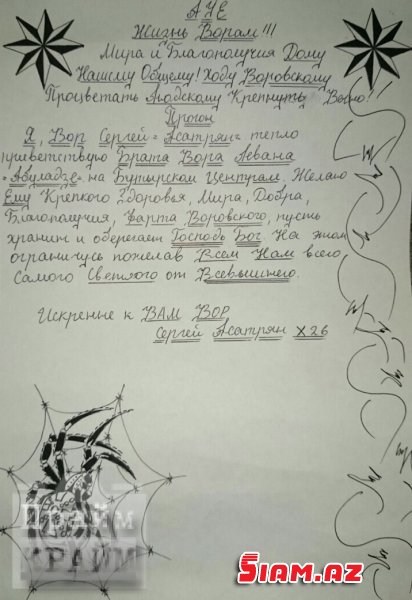 АУЕ
Жизнь Ворам!!!
Мира и Благополучия Дому
Нашему Общему! Ходу Воровскому
Процветать Людскому Крепнуть Вечно!
Прогон
Я, Вор Сергей "Асатрян" тепло
приветствую Брата Вора Левана
"Абуладзе" на Бутырском Централе. Желаю
Ему Крепкого Здоровья, Мира, Добра,
Благополучия, Фарта Воровского, пусть
хранит и оберегает Господь Бог На этом
ограничусь пожелав Всем Нам всего
Самого Светлого от Всевышнего.
Искренне к ВАМ ВОР
Сергей Асатрян Х26
Прайм
КРАЙМ
SIAM.AZ